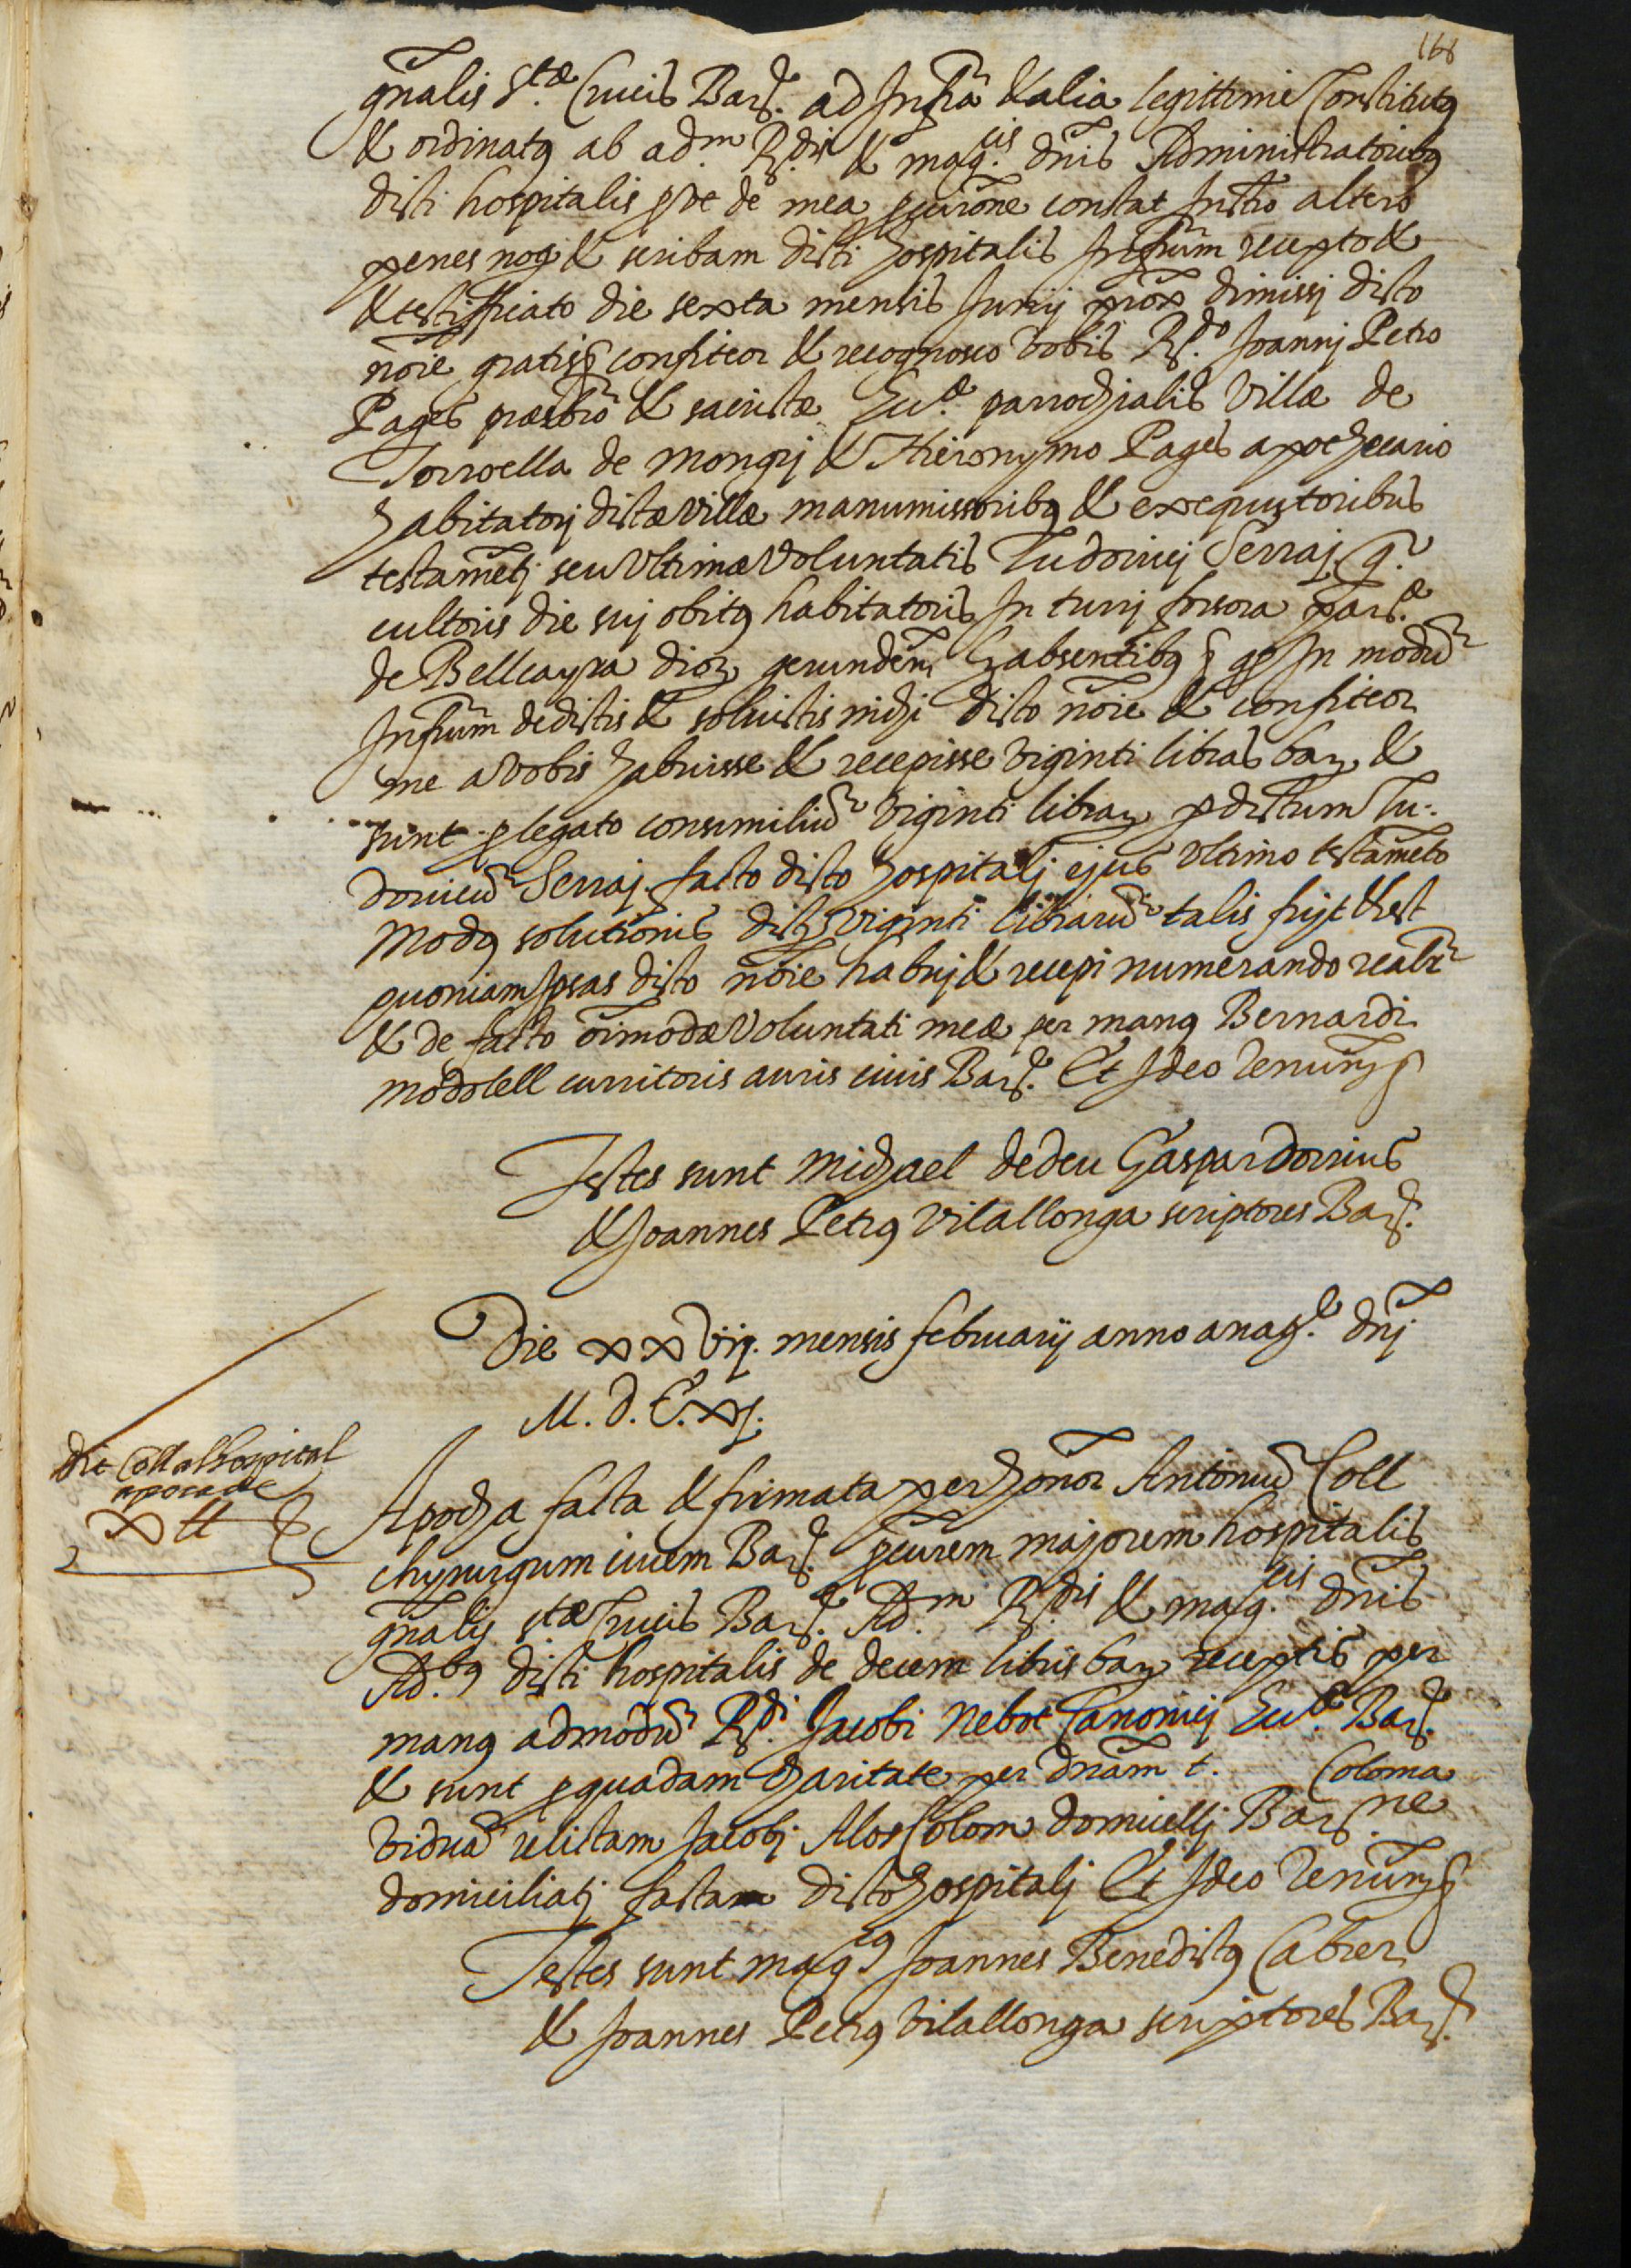 168
gñalis S.tæ Crucis Barã. ad Infrã & alia legittime Constitutus
& ordinatus ab ad.m R.dis & mag.cis dñis Administratoribus
dicti hospitalis prot de mea procurõne constat Instõ altero
penes not & scribam dicti hospitalis Infrũm recepto &
& testifficato die sexta mensis Junij prõx dimissi dicto
nõie gratis & confiteor & recognosco vobis R.do Joannj Petro
Pages præsbrõ & sacristæ Ecc.æ parrochialis villæ de
Torroella de mongrj & Hieronymo Pages apothecario
habitatorj dictæ villæ manumissoribus & exequutoribus
testamẽtj seu vltimæ voluntatis Ludovicj Serraj q.
cultoris die suj obitus habitatoris In turrj forsora par.æ
de Bellcayra dioc gerundẽñ Licet absentibus & qs In modũ
Infrũm dedistis & solvistis michi dicto nõie & confiteor
me a vobis habuisse & recepisse viginti libras bar &
sunt p legato consimiliũ viginti librar p dictum Lu-
dovicũ Serraj facto dicto hospitalj ejus vltimo testamẽto
Modus solutionis dictar viginti librarũ talis fuit & est
quoniam Ipsas dicto nõie habuj & recepi numerando realr̃
& de facto oĩmodæ voluntati meæ per manus Bernardi
modolell curritoris auris civis Bar. Et Ideo Renunÿ &
Testes sunt Michael dedeu Gaspar Dorrius
& Joannes Petrus vilallonga scriptores Bar.
Die xxvij. mensis februarij anno a nat.e dñj
M.D.C.xj.
dit Coll al hospital
apoca de
X ll
Apocha facta & firmata per honor Antoniũ Coll
chyrurgum civem Bar. procũrem majorem hospitalis
gñalis S.tæ Crucis Bar. Ad.m R.dis & mag.cis dñis
Ad.bus dicti hospitalis de decem libris bar receptis per
manus admodũ R.di Jacobi Nebot Canonicj Ecc.æ Bar.
& sunt p quadam charitate per dñam t. Coloma
viduã relictam Jacobj Alos Colom domicellj Bar.ne
domiciliatj factam dicto hospitalj Et Ideo Renunÿ &
Testes sunt mag.cus Joannes Benedictus Cabrer
& Joannes Petrus vilallonga scriptores Bar.